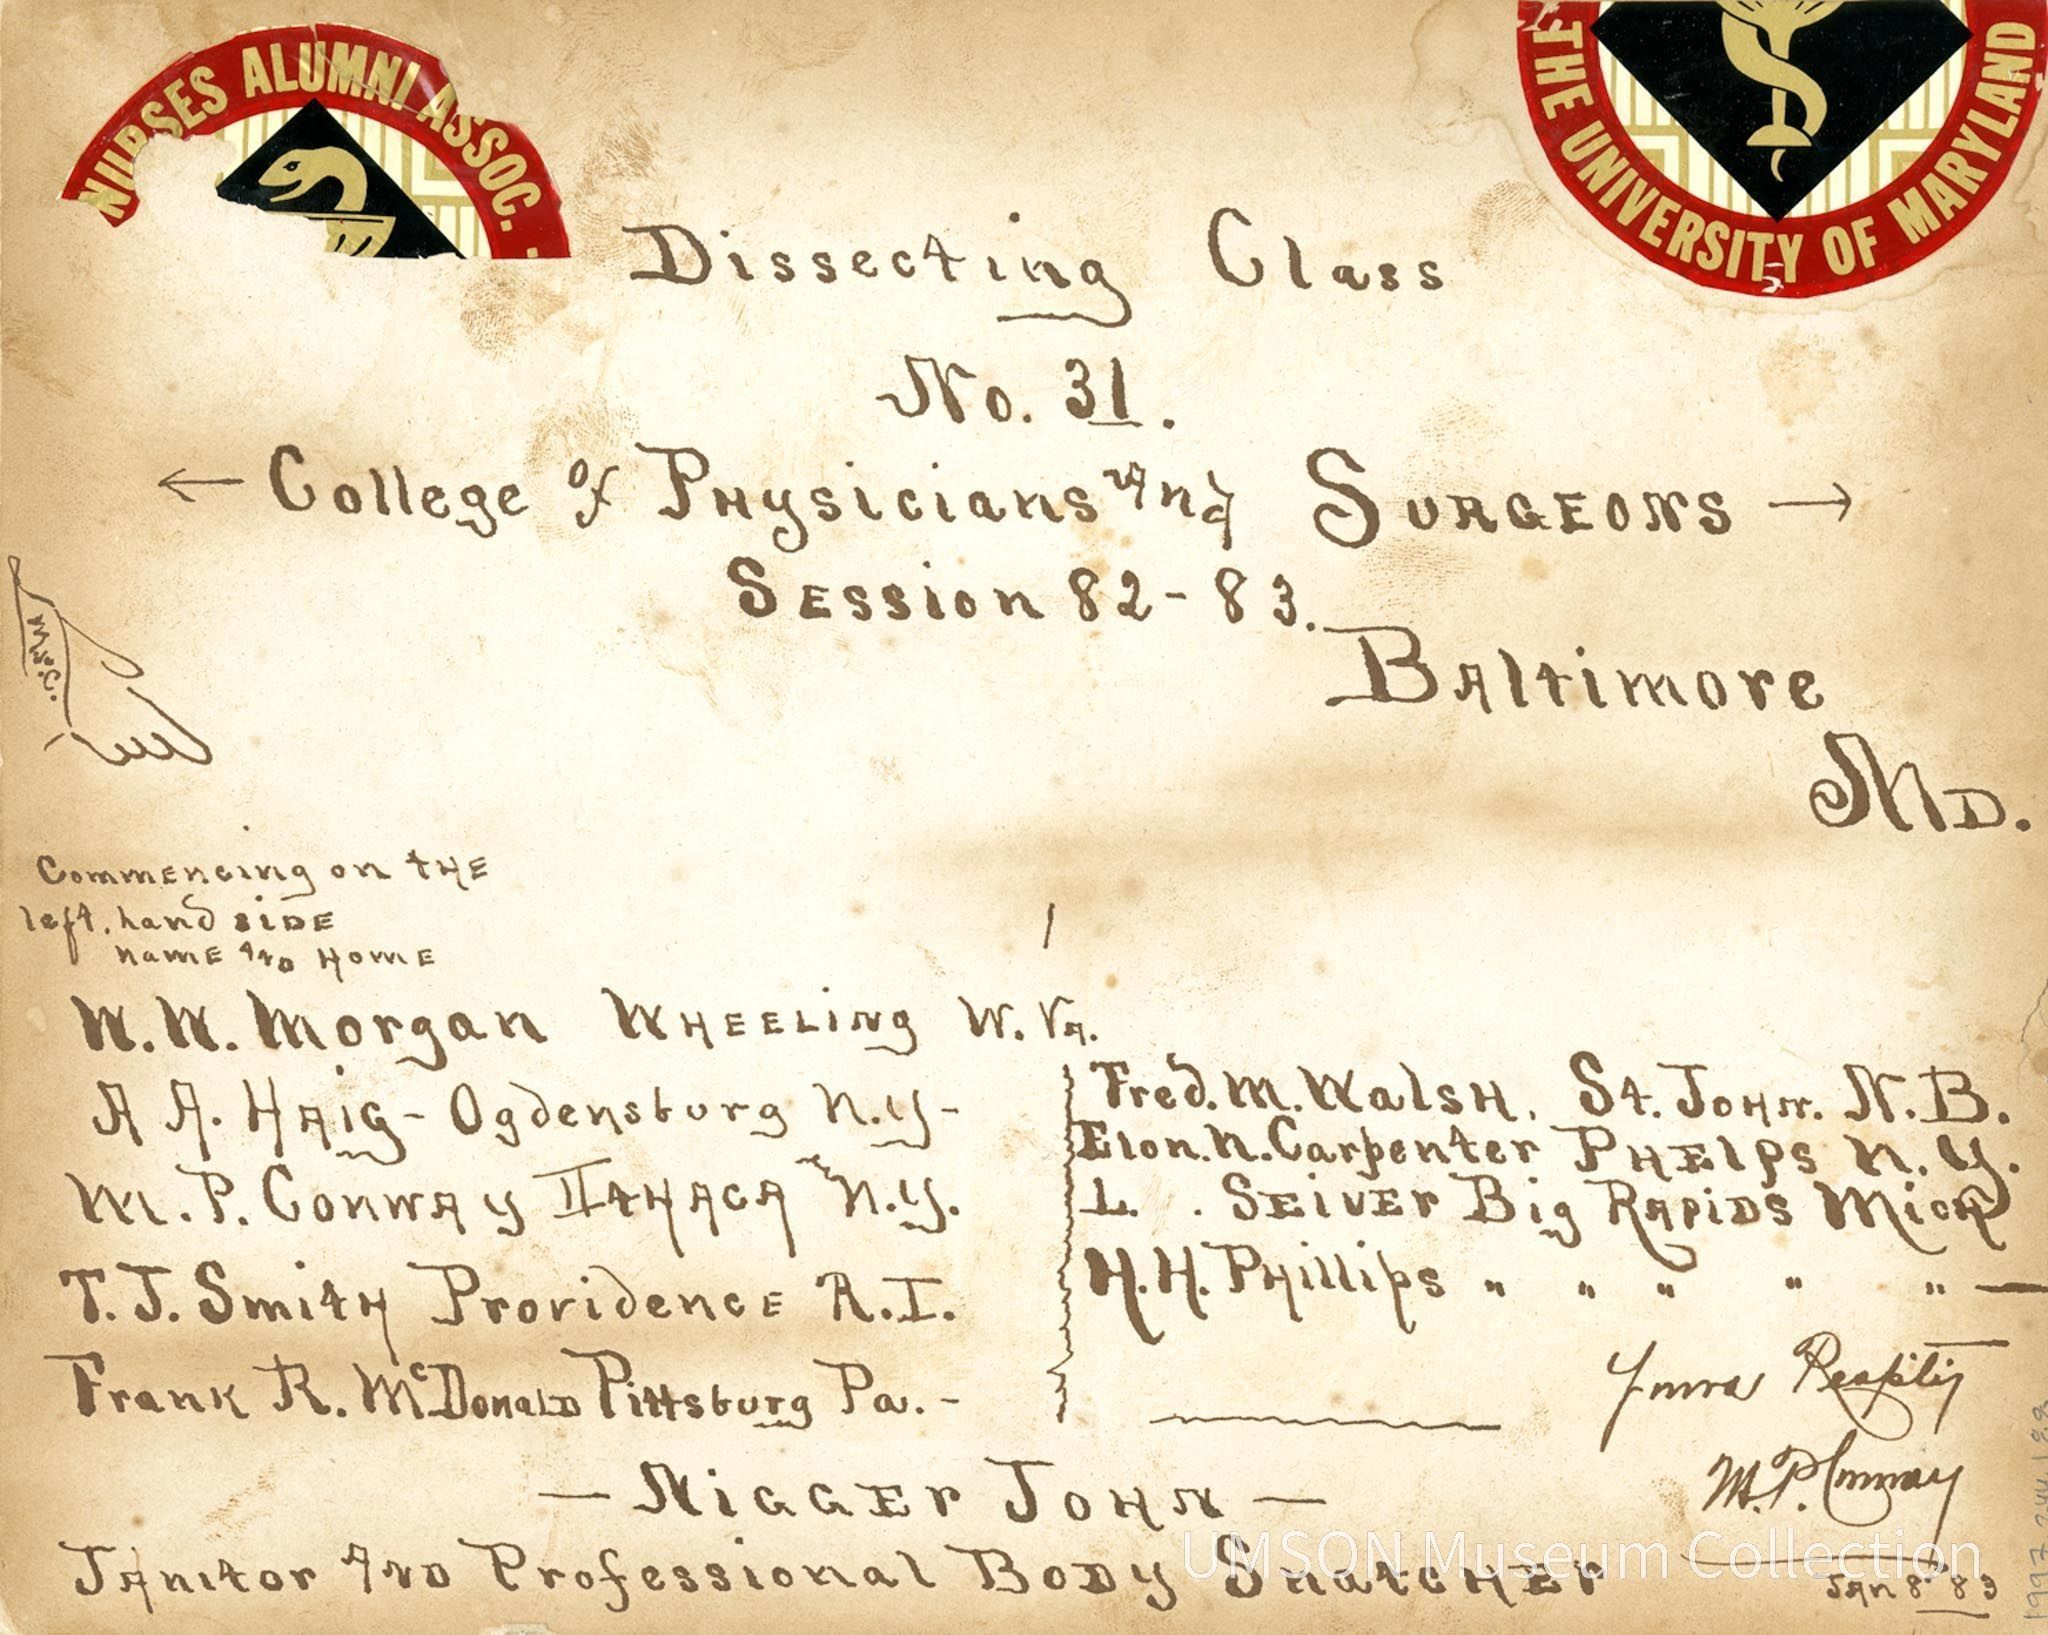 NURSES ALUMNI ASSOC.
THE UNIVERSITY OF MARYLAND
Dissecting Class
No. 31.
← College of Physicians And Surgeons →
Session 82-83.
Baltimore
Md.
Commencing on the
left, hand side
name and Home
W. W. Morgan Wheeling W. Va.
A A. Haig - Ogdensburg N.Y-
M. P. Conway Ithaca N.Y.
T. J. Smith Providence R.I.
Frank R. McDonald Pittsburg Pa. -
Fred. M. Walsh, St. John. N.B.
Elon. N. Carpenter Phelps N.Y.
L. . Seiver Big Rapids Mich
H. H. Phillips " " " " " —
Yours Respftly
M. P. Conway
— Nigger John —
Janitor and Professional Body Snatcher
Jan 8th 83
UMSON Museum Collection